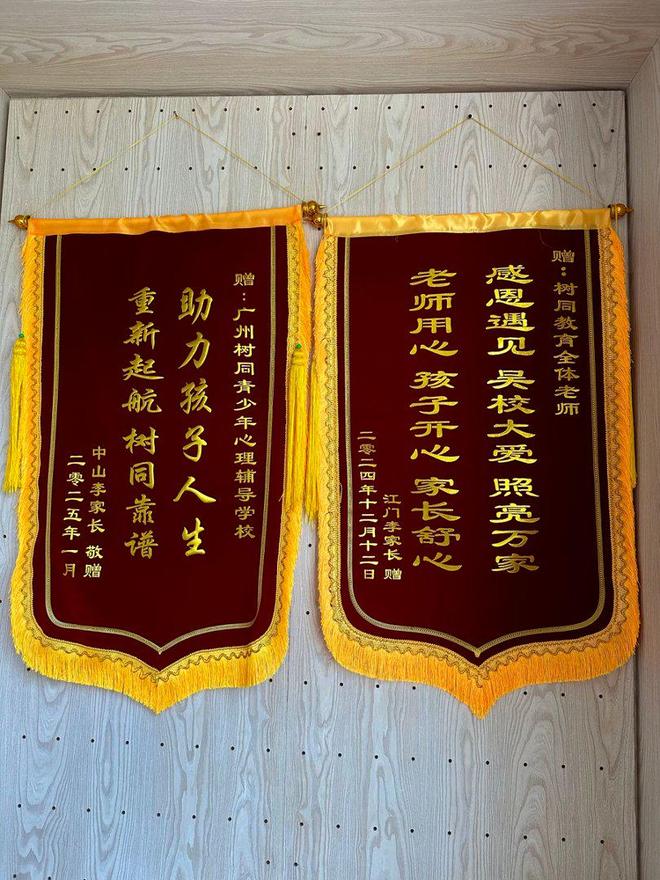 赠：树同教育全体老师
感恩遇见 吴校大爱 照亮万家
老师用心 孩子开心 家长舒心
江门李家长 赠
二零二四年十二月十二日
赠：广州树同青少年心理辅导学校
助力孩子人生
重新起航 树同靠谱
中山李家长 敬赠
二零二五年一月